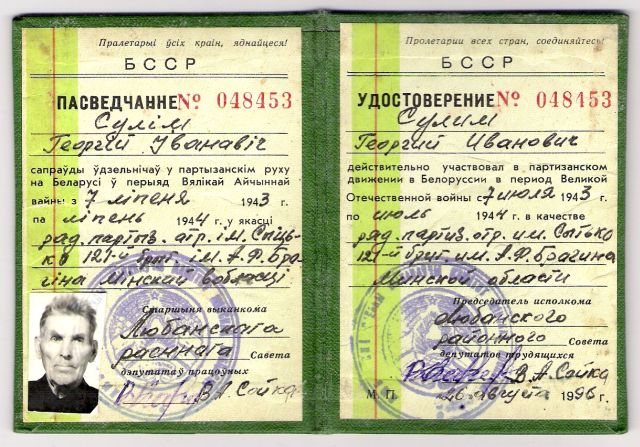 Пралетарыі ўсіх краін, яднайцеся!
БССР
ПАСВЕДЧАННЕ № 048453
Сулім
Георгій Іванавіч
сапраўды ўдзельнічаў у партызанскім руху
на Беларусі ў перыяд Вялікай Айчыннай
вайны з 7 ліпеня 1943 г.
па ліпень 1944 г. у якасці
рад. партыз. атр. ім. Сыцько
121-й брыг. ім. А.Ф. Брагіна
Мінскай вобласці
Старшыня выканкома
Любанскага
раённага Савета
дэпутатаў працоўных
В.А. Сойка
Пролетарии всех стран, соединяйтесь!
БССР
УДОСТОВЕРЕНИЕ № 048453
Сулим
Георгий Иванович
действительно участвовал в партизанском
движении в Белоруссии в период Великой
Отечественной войны с 7 июля 1943 г.
по июль 1944 г. в качестве
ряд. партиз. отр. им. Сытько
121-й бриг. им. А.Ф. Брагина
Минской области
Председатель исполкома
Любанского
районного Совета
депутатов трудящихся
В.А. Сойка
М. П. 26 августа 1996 г.